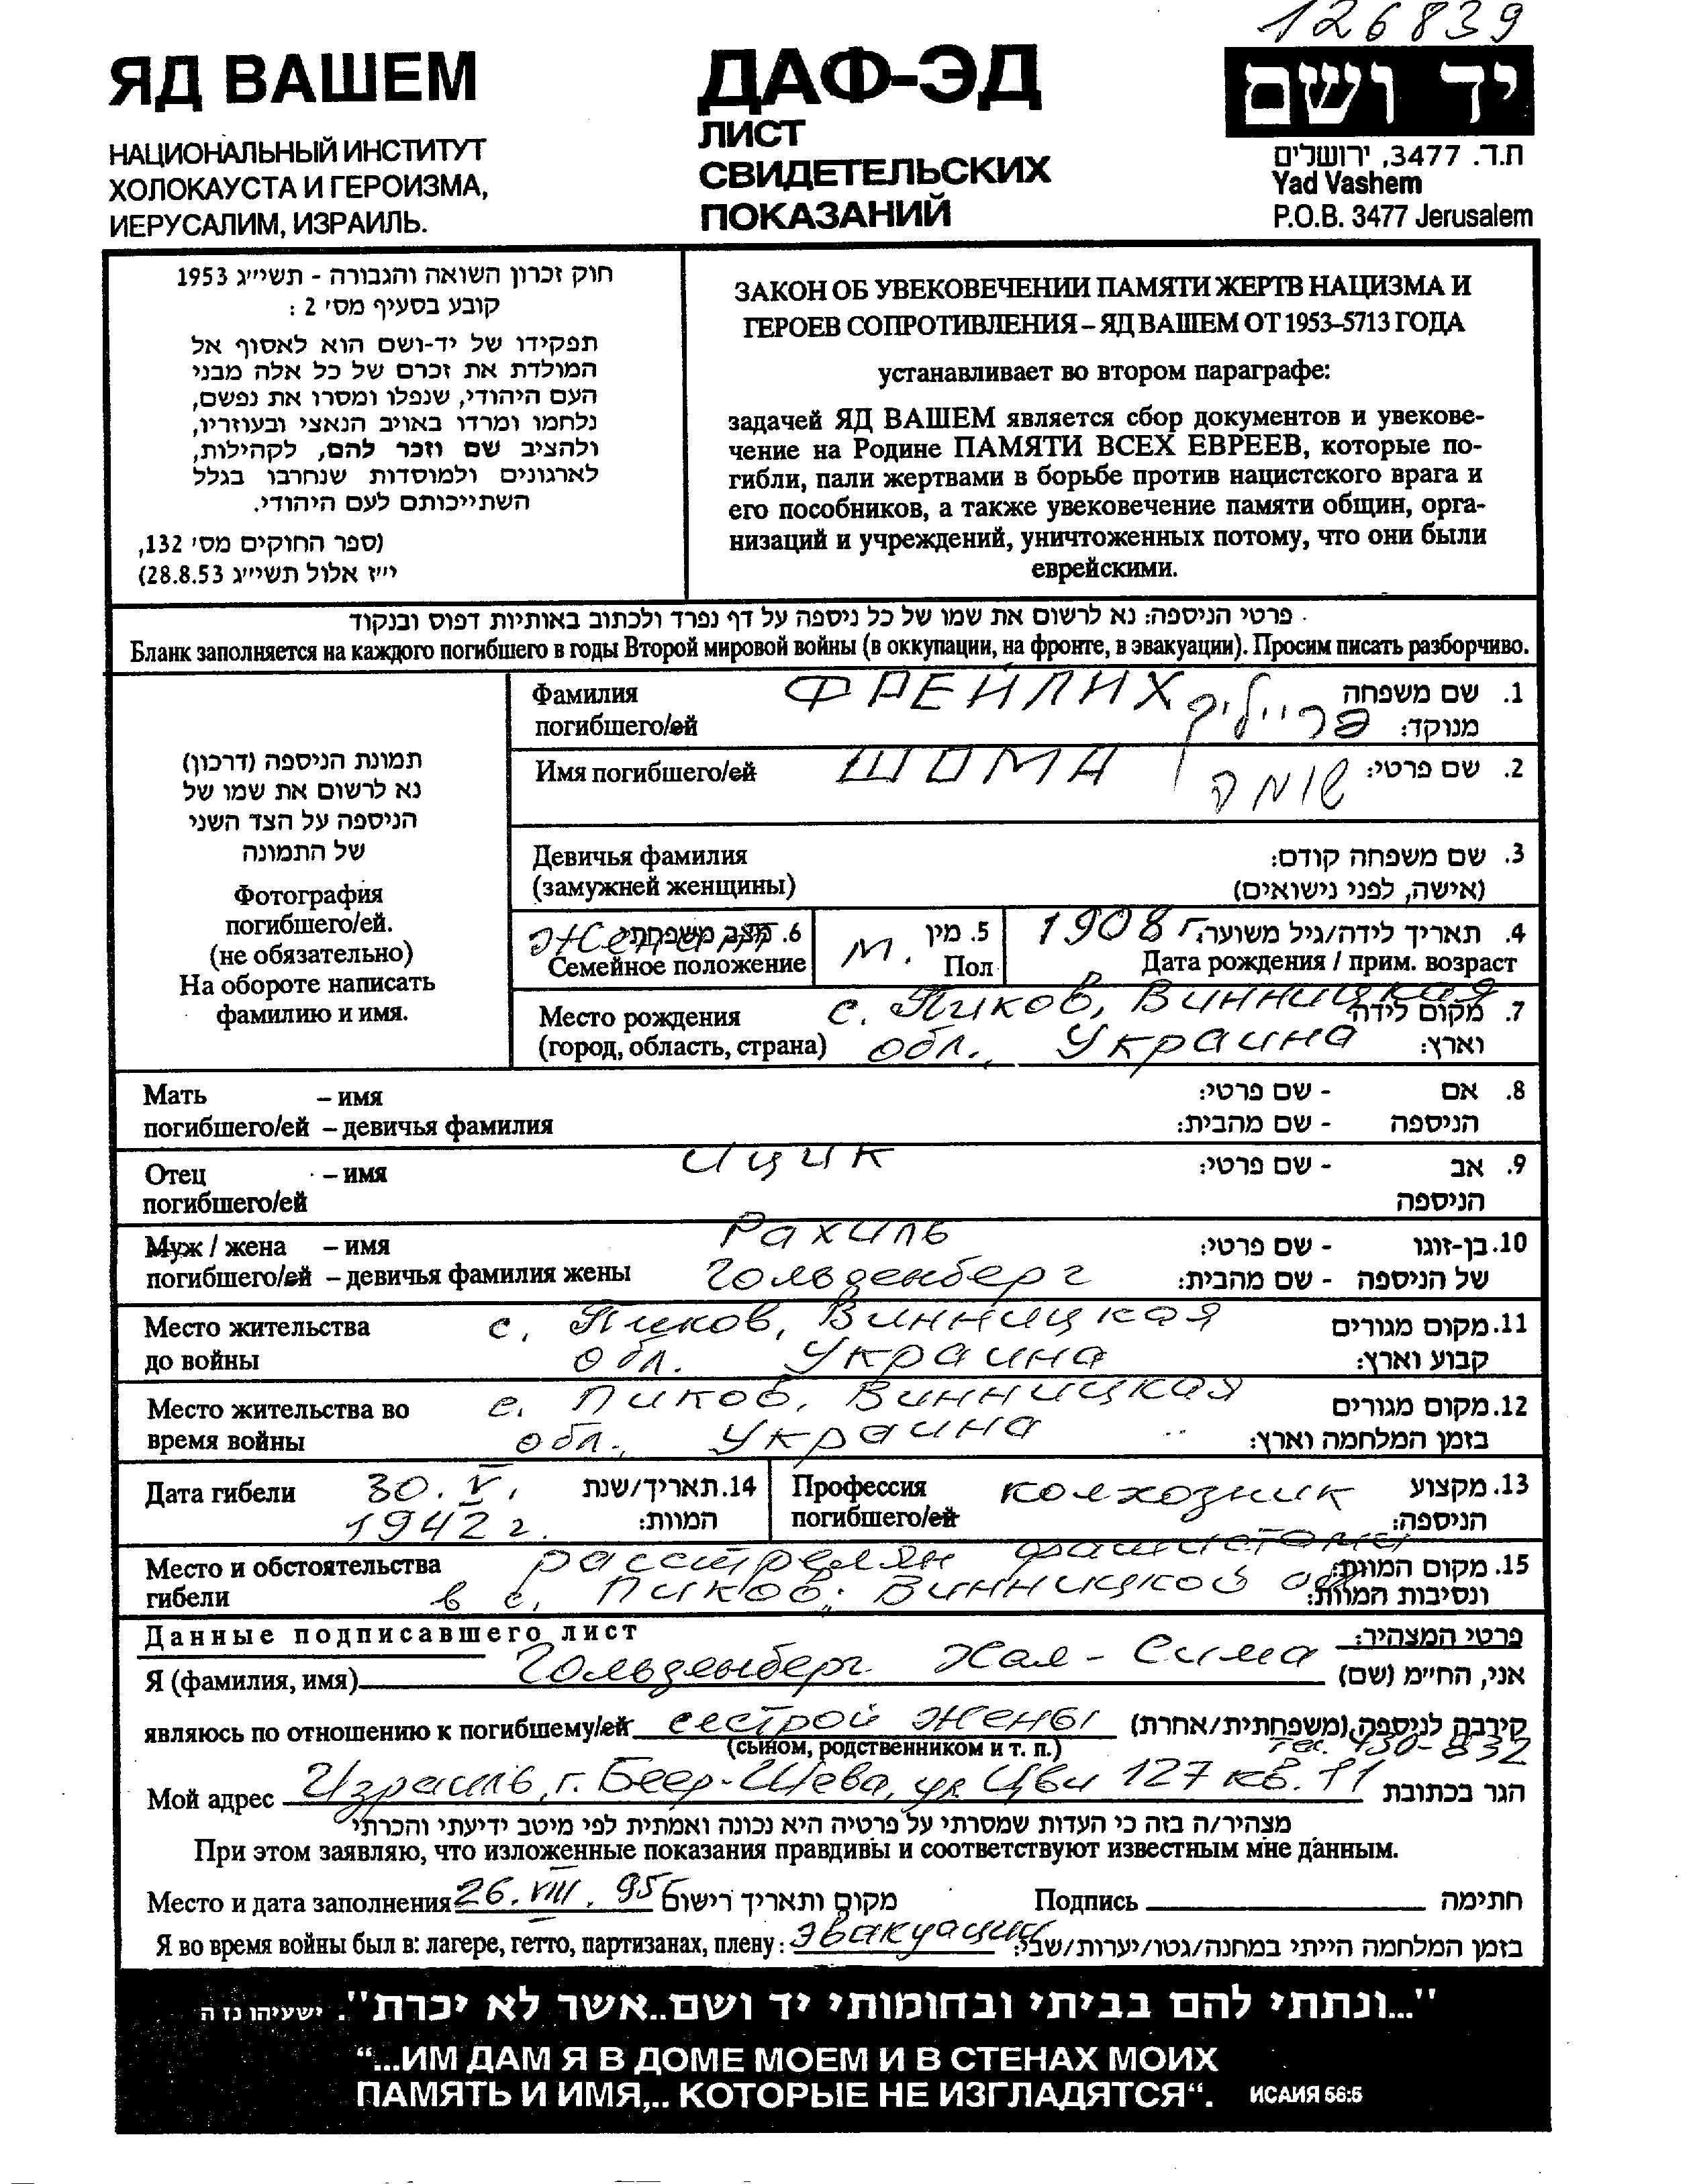 126839
ЯД ВАШЕМ
НАЦИОНАЛЬНЫЙ ИНСТИТУТ
ХОЛОКАУСТА И ГЕРОИЗМА,
ИЕРУСАЛИМ, ИЗРАИЛЬ.
ДАФ-ЭД
ЛИСТ
СВИДЕТЕЛЬСКИХ
ПОКАЗАНИЙ
יד ושם
ת.ד. 3477, ירושלים
Yad Vashem
P.O.B. 3477 Jerusalem
חוק זכרון השואה והגבורה - תשי״ג 1953
קובע בסעיף מס׳ 2 :
תפקידו של יד-ושם הוא לאסוף אל
המולדת את זכרם של כל אלה מבני
העם היהודי, שנפלו ומסרו את נפשם,
נלחמו ומרדו באויב הנאצי ובעוזריו,
ולהציב שם וזכר להם, לקהילות,
לארגונים ולמוסדות שנחרבו בגלל
השתייכותם לעם היהודי.
(ספר החוקים מס׳ 132,
י״ז אלול תשי״ג 28.8.53)
ЗАКОН ОБ УВЕКОВЕЧЕНИИ ПАМЯТИ ЖЕРТВ НАЦИЗМА И
ГЕРОЕВ СОПРОТИВЛЕНИЯ – ЯД ВАШЕМ ОТ 1953–5713 ГОДА
устанавливает во втором параграфе:
задачей ЯД ВАШЕМ является сбор документов и увекове-
чение на Родине ПАМЯТИ ВСЕХ ЕВРЕЕВ, которые по-
гибли, пали жертвами в борьбе против нацистского врага и
его пособников, а также увековечение памяти общин, орга-
низаций и учреждений, уничтоженных потому, что они были
еврейскими.
פרטי הניספה: נא לרשום את שמו של כל ניספה על דף נפרד ולכתוב באותיות דפוס ובנקוד
Бланк заполняется на каждого погибшего в годы Второй мировой войны (в оккупации, на фронте, в эвакуации). Просим писать разборчиво.
תמונת הניספה (דרכון)
נא לרשום את שמו של
הניספה על הצד השני
של התמונה
Фотография
погибшего/ей.
(не обязательно)
На обороте написать
фамилию и имя.
Фамилия ФРЕЙЛИХ פריילין 1. שם משפחה
погибшего/ей מנוקד:
Имя погибшего/ей ШОМА שומה 2. שם פרטי:
Девичья фамилия 3. שם משפחה קודם:
(замужней женщины) (אישה, לפני נישואים)
женат 6. מצב משפחתי м. 5. מין 1908 г. 4. תאריך לידה/גיל משוער:
Семейное положение Пол Дата рождения / прим. возраст
Место рождения с. Пиков, Винницкая 7. מקום לידה
(город, область, страна) обл., Украина וארץ:
Мать – имя - שם פרטי: 8. אם
погибшего/ей – девичья фамилия - שם מהבית: הניספה
Отец – имя Ицик - שם פרטי: 9. אב
погибшего/ей הניספה
Муж / жена – имя Рахиль - שם פרטי: 10. בן-זוגו
погибшего/ей – девичья фамилия жены Гольденберг - שם מהבית: של הניספה
Место жительства с. Пиков, Винницкая 11. מקום מגורים
до войны обл. Украина קבוע וארץ:
Место жительства во с. Пиков, Винницкая 12. מקום מגורים
время войны обл., Украина בזמן המלחמה וארץ:
Дата гибели 30. V. 14. תאריך/שנת Профессия колхозник 13. מקצוע
1942 г. המוות: погибшего/ей הניספה:
Место и обстоятельства расстрелян фашистами 15. מקום המוות
гибели в с. Пиков, Винницкой обл ונסיבות המוות:
Данные подписавшего лист פרטי המצהיר:
Я (фамилия, имя) Гольденберг Хая-Сима אני, הח״מ (שם)
являюсь по отношению к погибшему/ей сестрой жены קירבה לניספה (משפחתית/אחרת)
(сыном, родственником и т. п.) тел. 430-832
Мой адрес Израиль, г. Беер-Шева, ул Цви 127 кв. 11 הגר בכתובת
מצהיר/ה בזה כי העדות שמסרתי על פרטיה היא נכונה ואמתית לפי מיטב ידיעתי והכרתי
При этом заявляю, что изложенные показания правдивы и соответствуют известным мне данным.
Место и дата заполнения 26. VIII. 95 מקום ותאריך רישום Подпись חתימה
Я во время войны был в: лагере, гетто, партизанах, плену: эвакуации בזמן המלחמה הייתי במחנה/גטו/יערות/שבי:
"...ונתתי להם בביתי ובחומותי יד ושם..אשר לא יכרת". ישעיהו נז ה
“...ИМ ДАМ Я В ДОМЕ МОЕМ И В СТЕНАХ МОИХ
ПАМЯТЬ И ИМЯ,.. КОТОРЫЕ НЕ ИЗГЛАДЯТСЯ“. ИСАИЯ 56:5